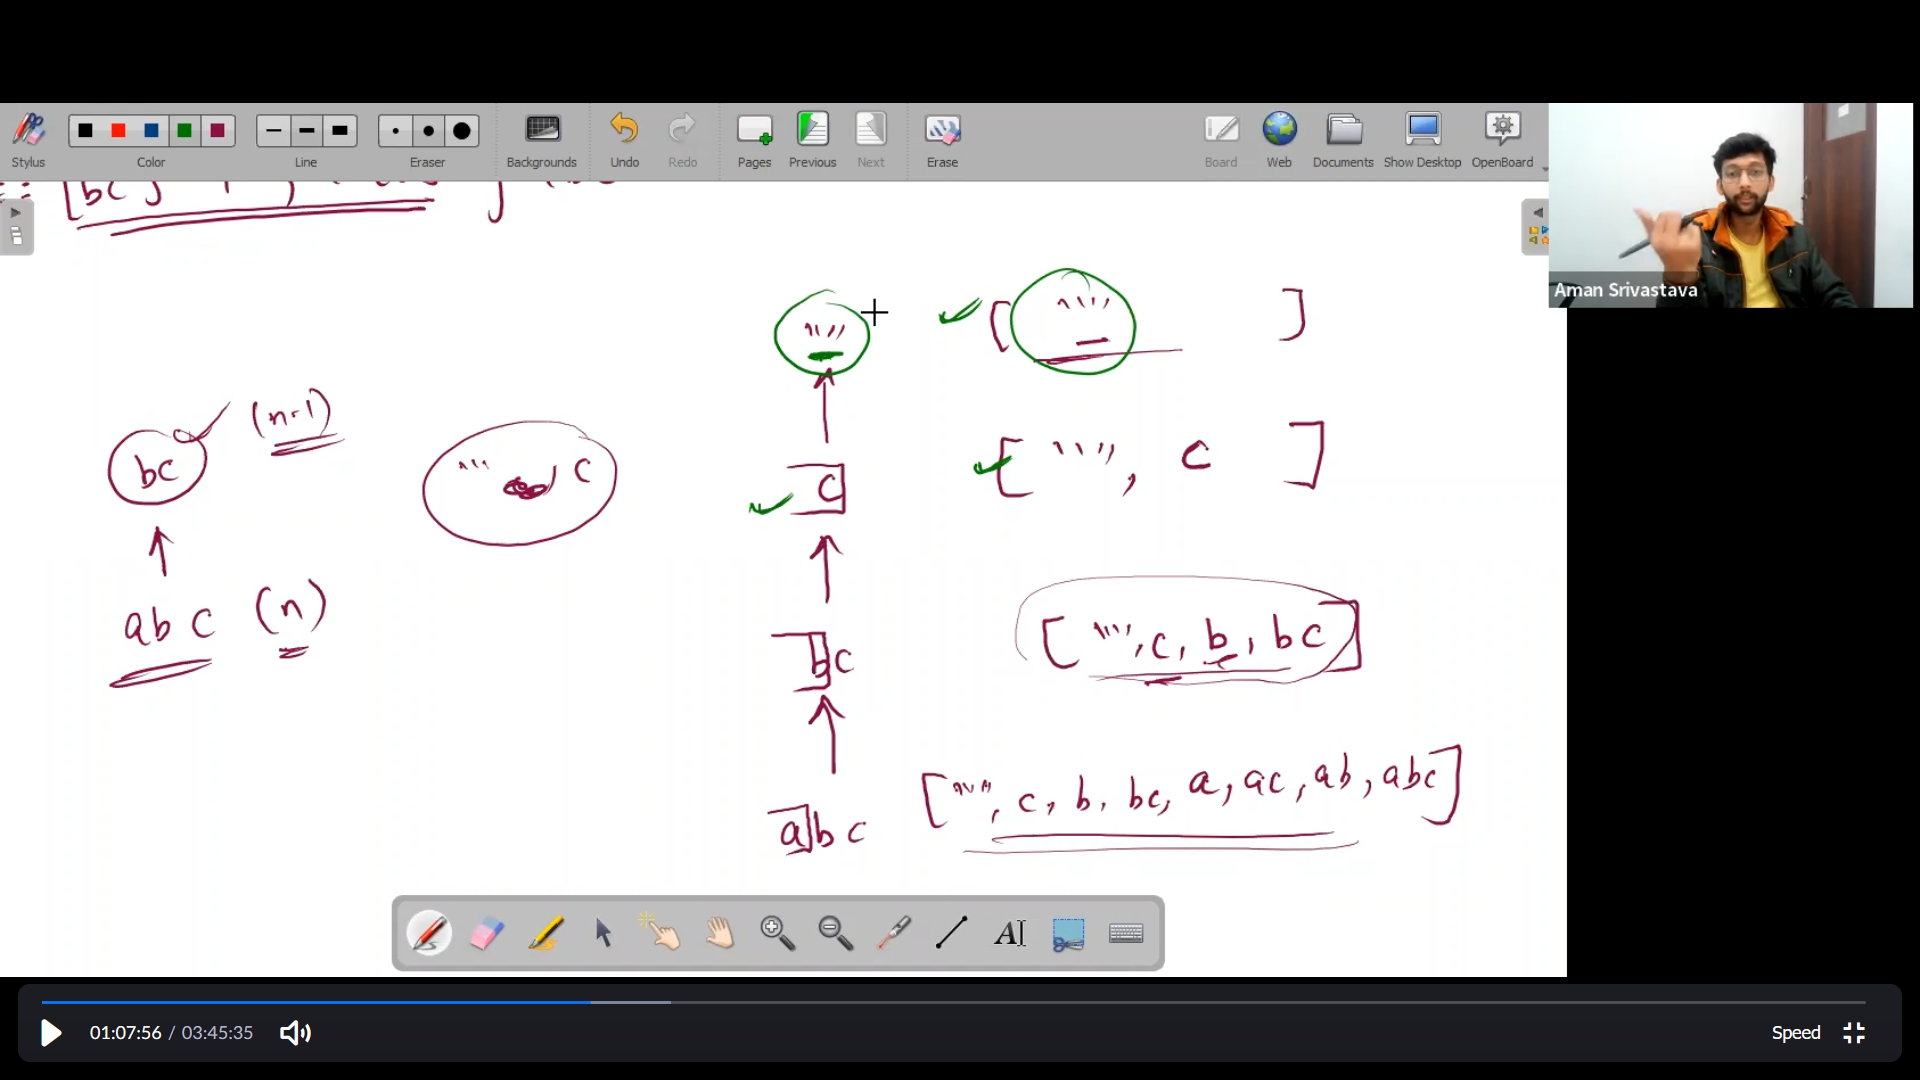 Stylus Color Line Eraser Backgrounds Undo Redo Pages Previous Next Erase Board Web Documents Show Desktop OpenBoard
[bc]
Aman Srivastava
"" [ "" ]
bc (n-1)
"" c
c [ "", c ]
abc (n)
bc [ "", c, b, bc ]
abc [ "", c, b, bc, a, ac, ab, abc ]
AI
01:07:56 / 03:45:35 Speed